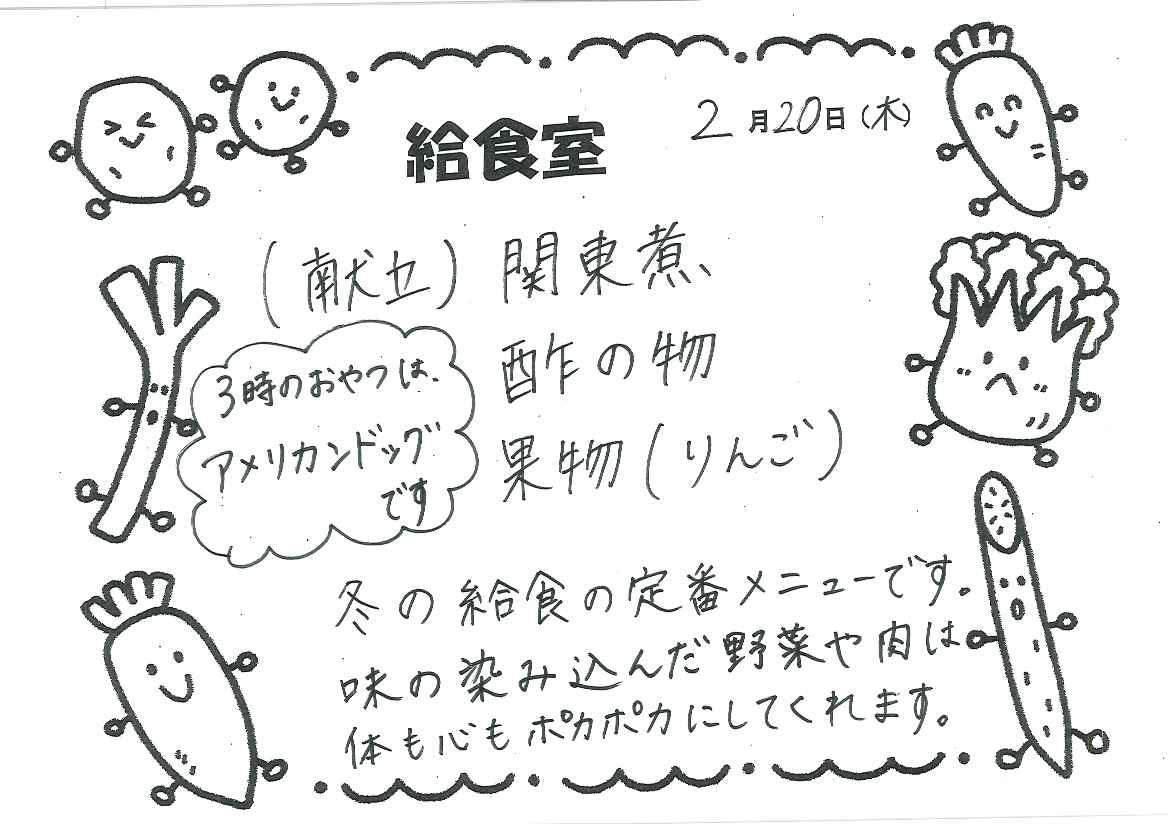 給食室
2月20日(木)
(献立) 関東煮、
酢の物
果物(りんご)
3時のおやつは、
アメリカンドッグ
です
冬の給食の定番メニューです。
味の染み込んだ野菜や肉は
体も心もポカポカにしてくれます。